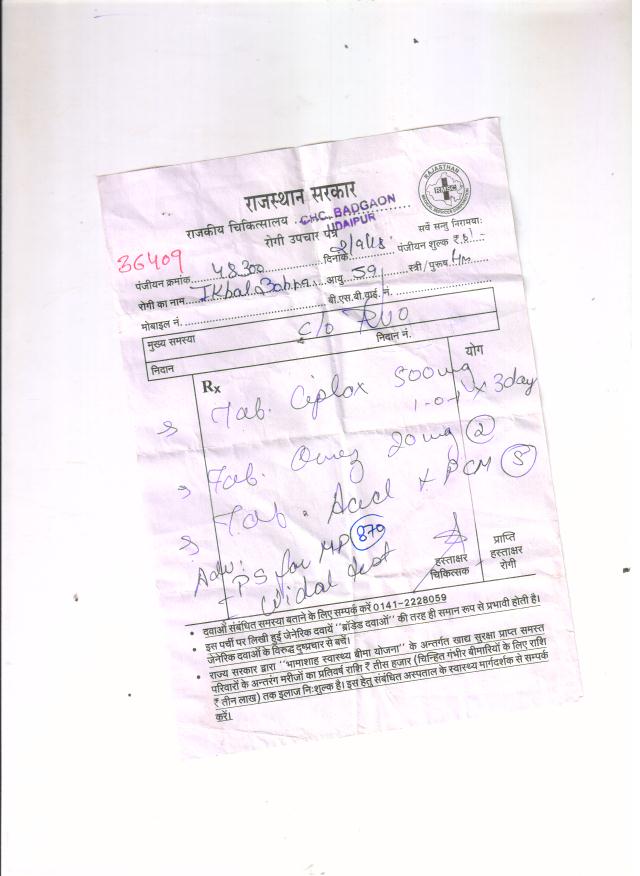 राजस्थान सरकार
राजकीय चिकित्सालय CHC BADGAON
UDAIPUR
रोगी उपचार पत्र
सर्वे सन्तु निरामयाः
RAJASTHAN
36409
पंजीयन क्रमांक 48300 दिनांक पंजीयन शुल्क ₹
रोगी का नाम Ikbal आयु 59 स्त्री/पुरूष
मोबाइल नं. बी.एस.बी.वाई. नं.
मुख्य समस्या c/o निदान नं.
निदान
योग
Rx
Tab. Ciplox 500mg
1-0-1 x 3day
Tab. Omez 20mg 2
Tab. + PCM
Adv:
PS for MP 879
Widal test
हस्ताक्षर चिकित्सक
प्राप्ति हस्ताक्षर रोगी
• दवाओं संबंधित समस्या बताने के लिए सम्पर्क करें 0141-2228059
• इस पर्ची पर लिखी हुई जेनेरिक दवायें "ब्रांडेड दवाओं" की तरह ही समान रूप से प्रभावी होती है।
जेनेरिक दवाओं के विरुद्ध दुष्प्रचार से बचें।
• राज्य सरकार द्वारा "भामाशाह स्वास्थ्य बीमा योजना" के अन्तर्गत खाद्य सुरक्षा प्राप्त समस्त
परिवारों के अन्तरंग मरीजों का प्रतिवर्ष राशि ₹ तीस हजार (चिन्हित गंभीर बीमारियों के लिए राशि
₹ तीन लाख) तक इलाज निःशुल्क है। इस हेतु संबंधित अस्पताल के स्वास्थ्य मार्गदर्शक से सम्पर्क
करें।